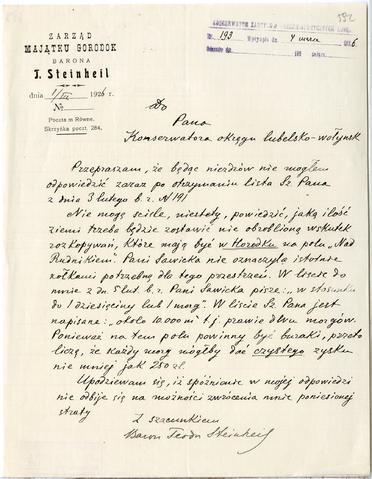 ZARZĄD
MAJĄTKU GORODOK
BARONA
T. Steinheil
dnia 1/III 1926 r.
№
Poczta m Równe.
Skrzyńka poczt. 284.
192
№ 193 Wpłynęło dn. 4 marca 1926
Do
Pana
Konserwatora okręgu lubelsko-wołyńsk
Przepraszam, że będąc niezdrów nie mogłem
odpowiedzić zaraz po otrzymaniu lista Sz. Pana
z dnia 3 lutego b. r. N 191
Nie mogę ściśle, niestety, powiedzić, jaką ilość
ziemi trzeba będzie zostawić nie obrobioną wskutek
rozkopywań, które mają być w Horodku na polu „Nad
Rudnikiem". Pani Sawicka nie oznaczyła istotnie
kółkami potrzebną dla tego przestrzeń. W liście do
mnie z dn. 5 lut. b. r. Pani Sawicka pisze: „w stosunku
do 1 dziesięciny lub 1 morg". W liście Sz. Pana jest
napisane: „około 10.000 m² t. j. prawie dwu morgów.
Ponieważ na tem polu powinny być buraki, przeto
liczę, że każdy morg mógłby dać czystego zysku
nie mniej jak 250 zł.
Upodziewam się, iż spóźnianie w mojej odpowiedzi
nie odbije się na możności zwrócenia mnie poniesionej
straty
Z szacunkiem
Baron Teodor Steinheil